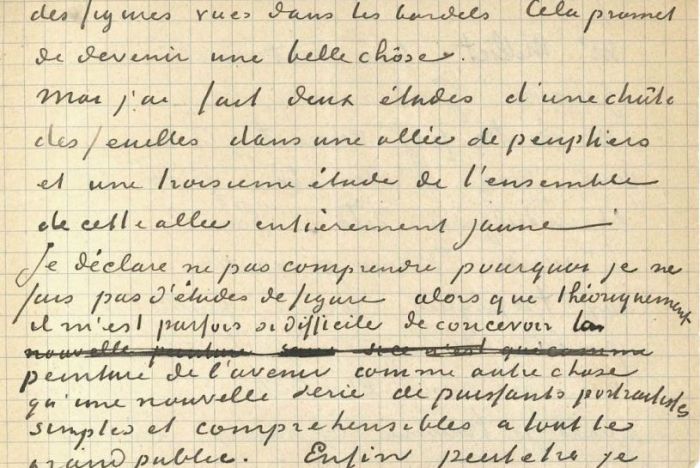 des figures vues dans les bordels Cela promet
de devenir une belle chôse.
Moi j'ai fait deux études d'une chûte
des feuilles dans une allée de peupliers
et une troisieme étude de l'ensemble
de cette allée entièrement jaune
Je déclare ne pas comprendre pourquoi je ne
fais pas d'études de figure alors que théoriquement
il m'est parfois si difficile de concevoir la
nouvelle peinture si ce n'est que comme
peinture de l'avenir comme autre chose
qu'une nouvelle serie de puissants portraitistes
simples et comprehensibles a tout le
grand public. Enfin peutetre je